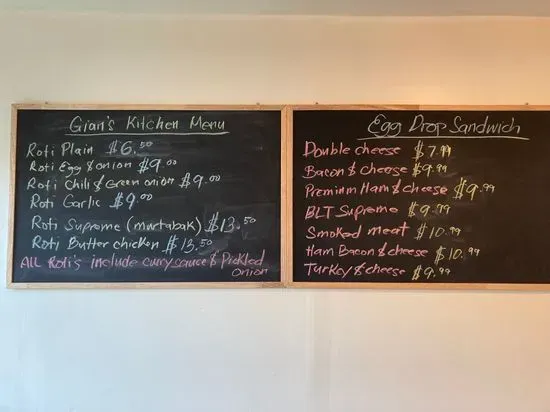 Gian's Kitchen Menu
Roti Plain $6.50
Roti Egg & onion $9.00
Roti Chili & Green onion $9.00
Roti Garlic $9.00
Roti Supreme (murtabak) $13.50
Roti Butter chicken $13.50
ALL Roti's include curry sauce & Pickled
onion
Egg Drop Sandwich
Double cheese $7.99
Bacon & cheese $9.99
Premium Ham & cheese $9.99
BLT Supreme $9.99
Smoked meat $10.99
Ham Bacon & cheese $10.99
Turkey & cheese $9.99